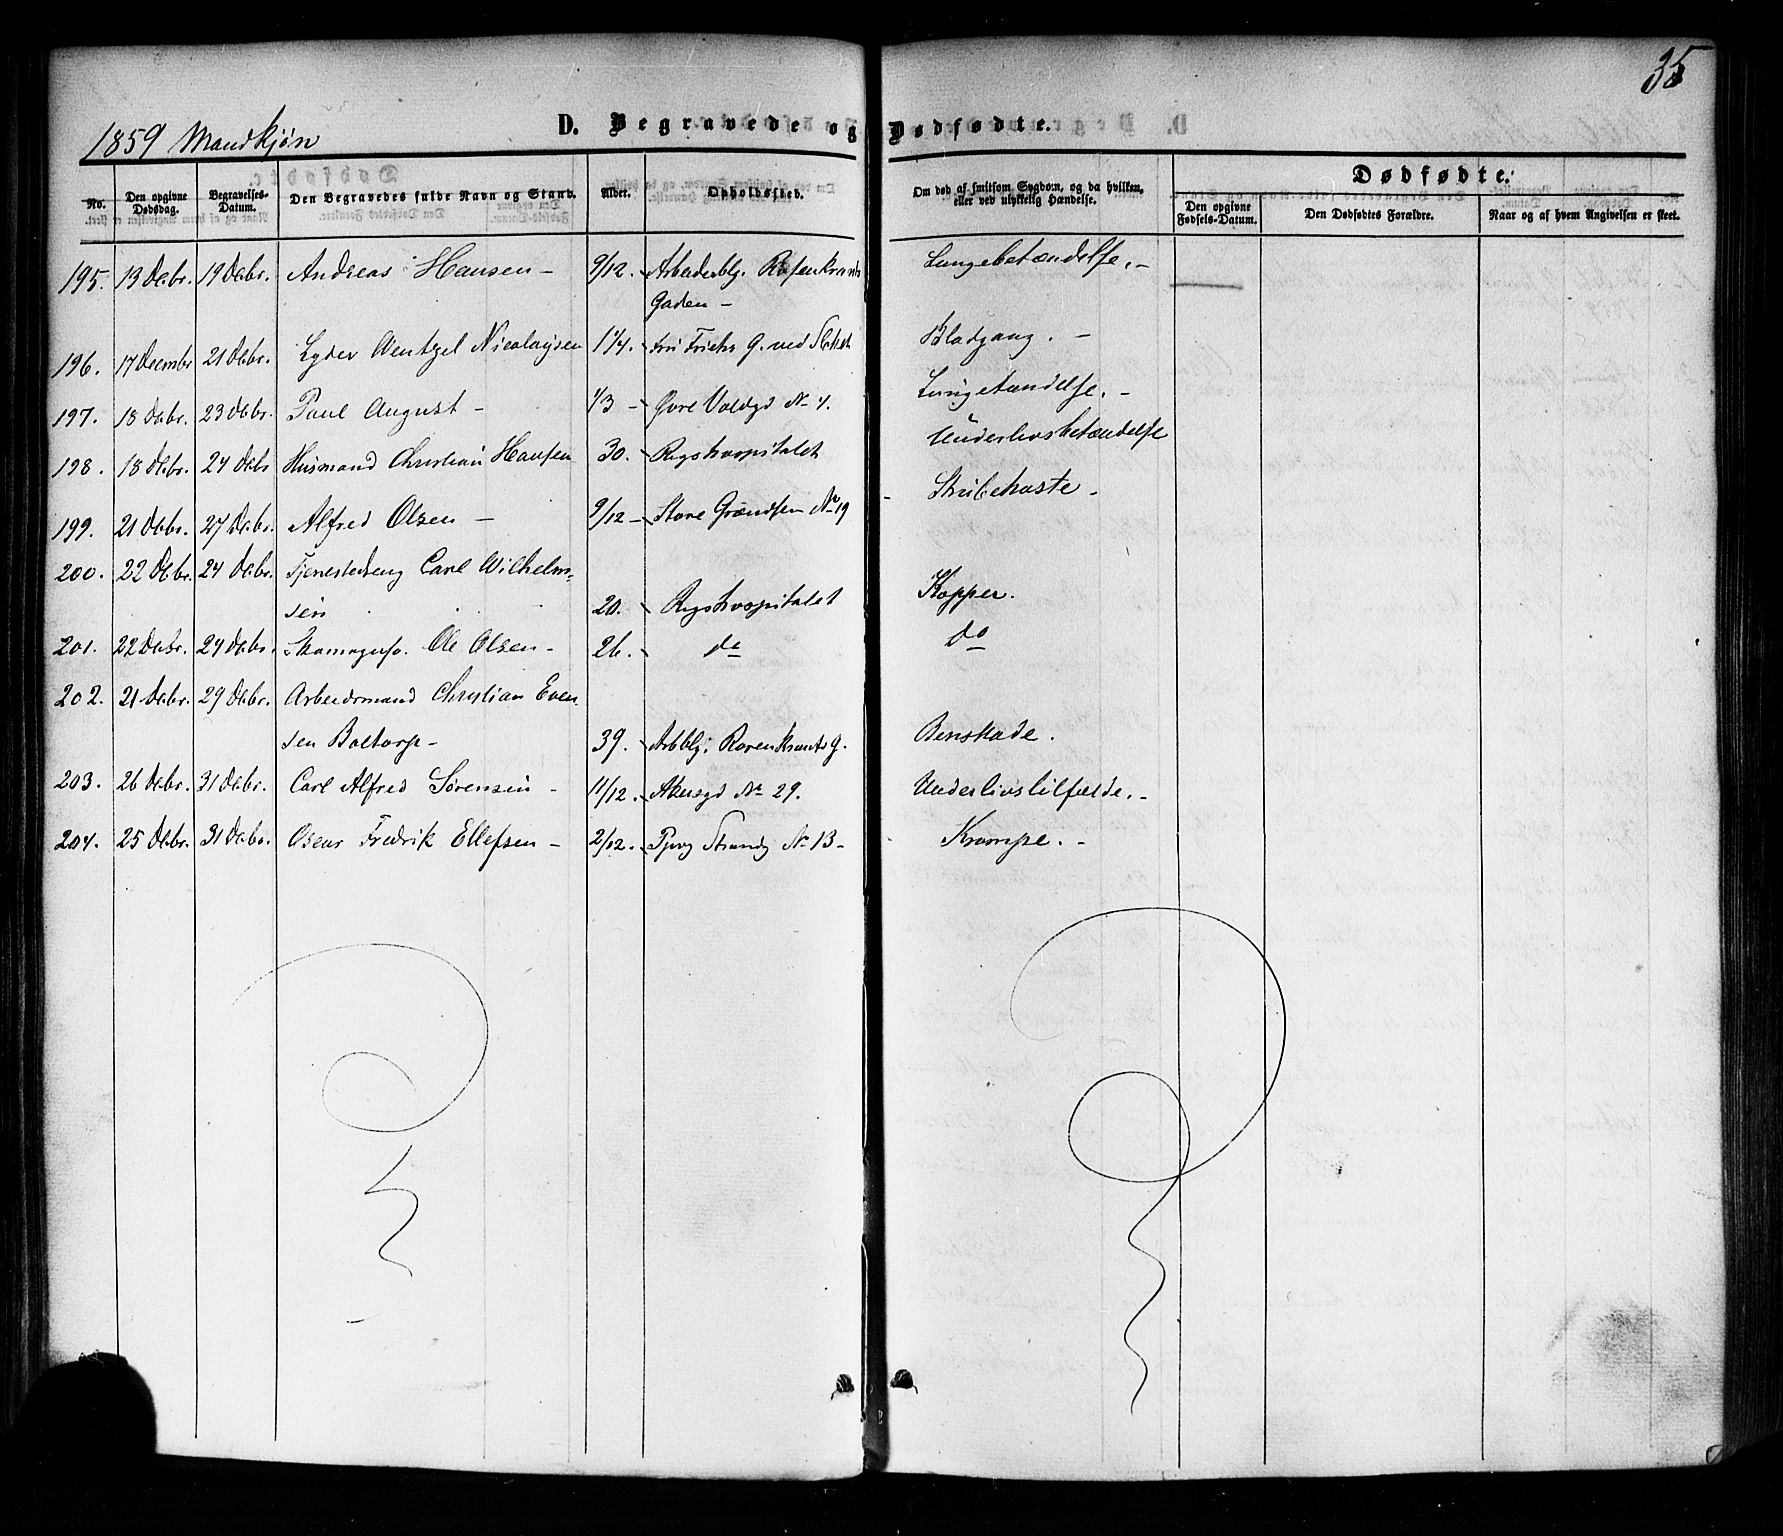 35
1859 Mandkjøn
D. Begravede og Dødfødte.
No. Den opgivne Dødsdag. Begravelses-Datum. Den Begravedes fulde Navn og Stand. Alder. Opholdssted. Om død af smitsom Sygdom, og da hvilken, eller ved ulykkelig Hændelse. Dødfødte.
Den opgivne Fødsels-Datum. Den Dødfødtes Forældre. Naar og af hvem Angivelsen er skeet.
195. 13 Debr. 19 Debr. Andreas Hansen - 9/12. Arbeiderblg. Rosenkrants Lungebetændelse. -
Gaden -
196. 17 Decembr 21 Debr. Lyder Wentzel Nicolaysen 1 1/4. G. ved Slottet Blodgang. -
197. 18 Debr. 23 Debr. Paul August - 1/3 - Øvre Voldgd No 4. -
198. 18 Debr. 24 Debr Husmand Christian Hansen 30. Rigshospitalet Underlivsbetændelse
199. 21 Debr. 27 Debr. Alfred Olsen - 9/12 - Store Grændsen No 19 - Strubehoste -
200. 22 Debr. 24 Debr. Carl Wilhelm-
sen 20. Rigshospitalet Kopper.
201. 22 Debr. 24 Debr. Ole Olsen - 26. do do
202. 21 Debr. 29 Debr. Arbeidsmand Christian Even
sen Boltorp - 39. Arbblg. Rosenkrants g. Benskade.
203. 26 Debr. 31 Debr. Carl Alfred Sørensen - 11/12. Akersgd No 29. Underlivstilfælde. -
204. 25 Debr. 31 Debr. Oscar Fredrik Ellefsen - 2/12. No 13 - Krampe. -